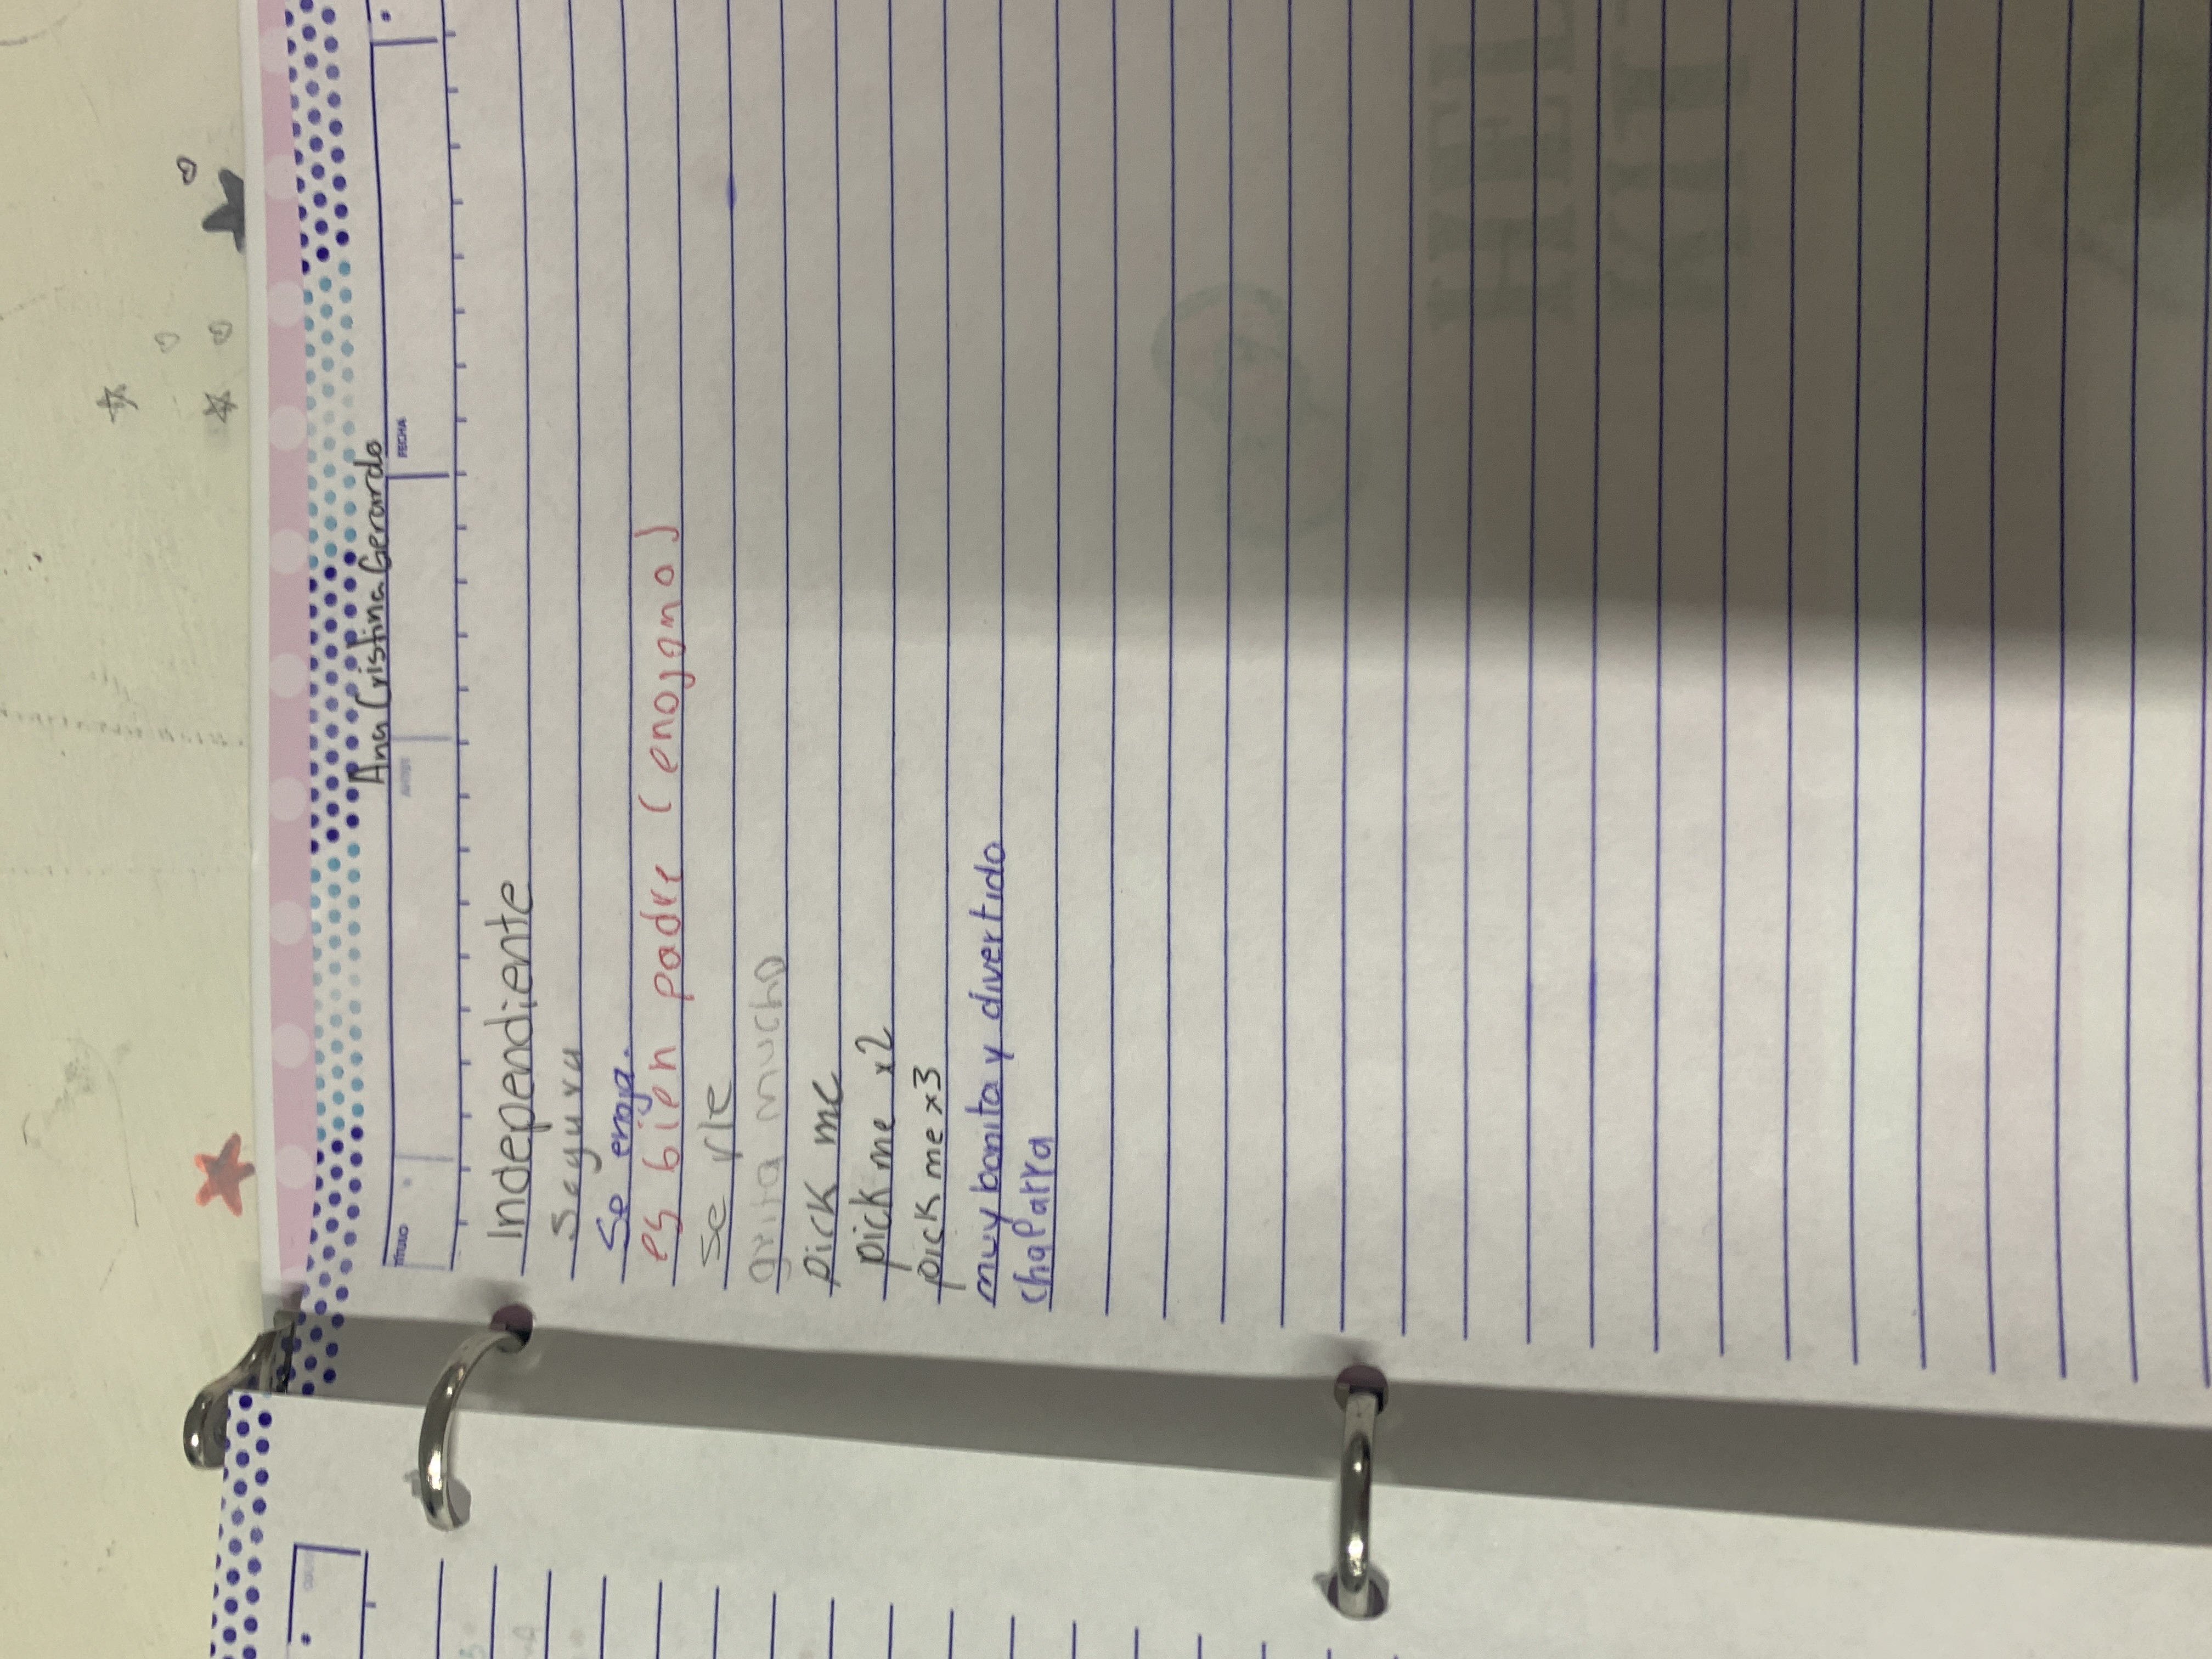 Ana Cristina Gerardo
TÍTULO
FECHA
Independiente
Segura
Se enoja.
es bien padre (enojona)
se rie
grita mucho
pick me
pick me x2
pick me x3
muy bonita y divertida
chaparra